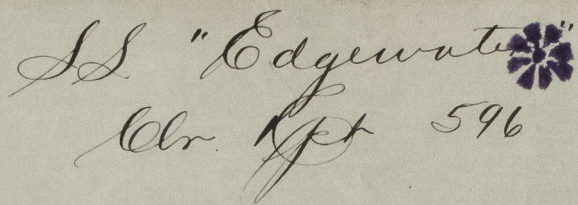 SS "Edgewater"
Clr. Rpt 596